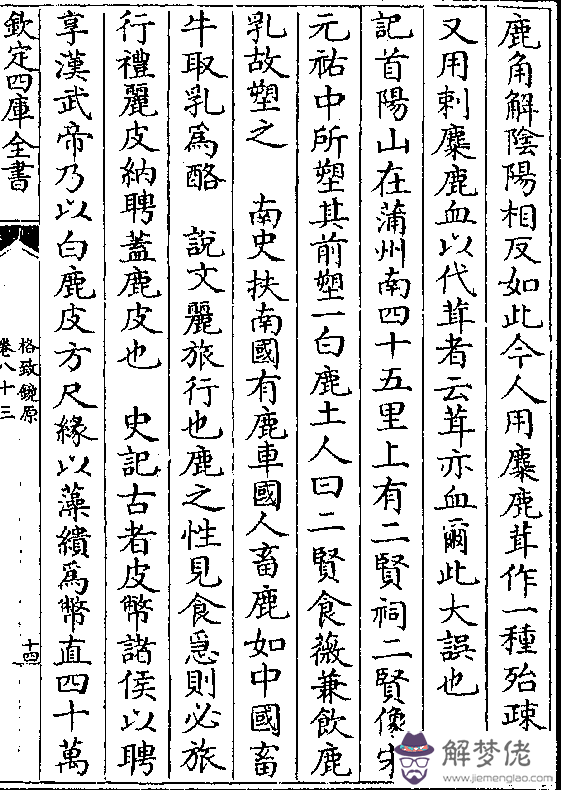 鹿角解陰陽相反如此今人用麋鹿茸作一種殆疎
又用刺麋鹿血以代茸者云茸亦血爾此大誤也
記首陽山在蒲州南四十五里上有二賢祠二賢像宋
元祐中所塑其前塑一白鹿土人曰二賢食薇兼飲鹿
乳故塑之 南史扶南國有鹿車國人畜鹿如中國畜
牛取乳為酪 說文麗旅行也鹿之性見食急則必旅
行禮麗皮納聘蓋鹿皮也 史記古者皮幣諸侯以聘
享漢武帝乃以白鹿皮方尺緣以藻繢為幣直四十萬
欽定四庫全書
格致鏡原
卷八十三
十四
解梦佬
www.jiemenglao.com